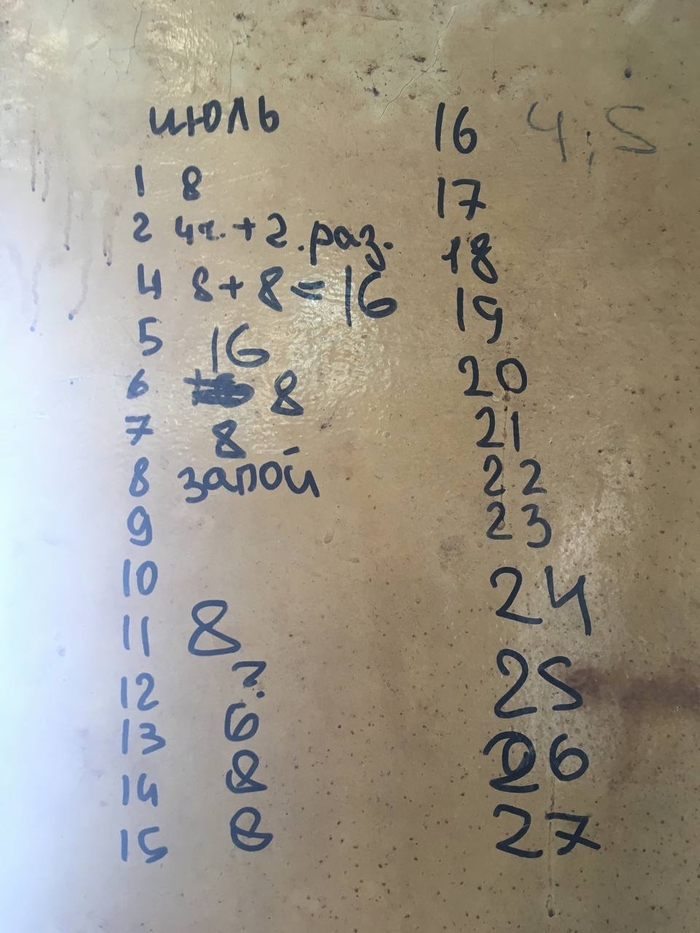 июль
1 8
2 4ч. + 2. раз.
4 8 + 8 = 16
5 16
6 8
7 8
8 запой
9
10
11 8
12 ?
13 6
14 8
15 8
16 4,5
17
18
19
20
21
22
23
24
25
26
27